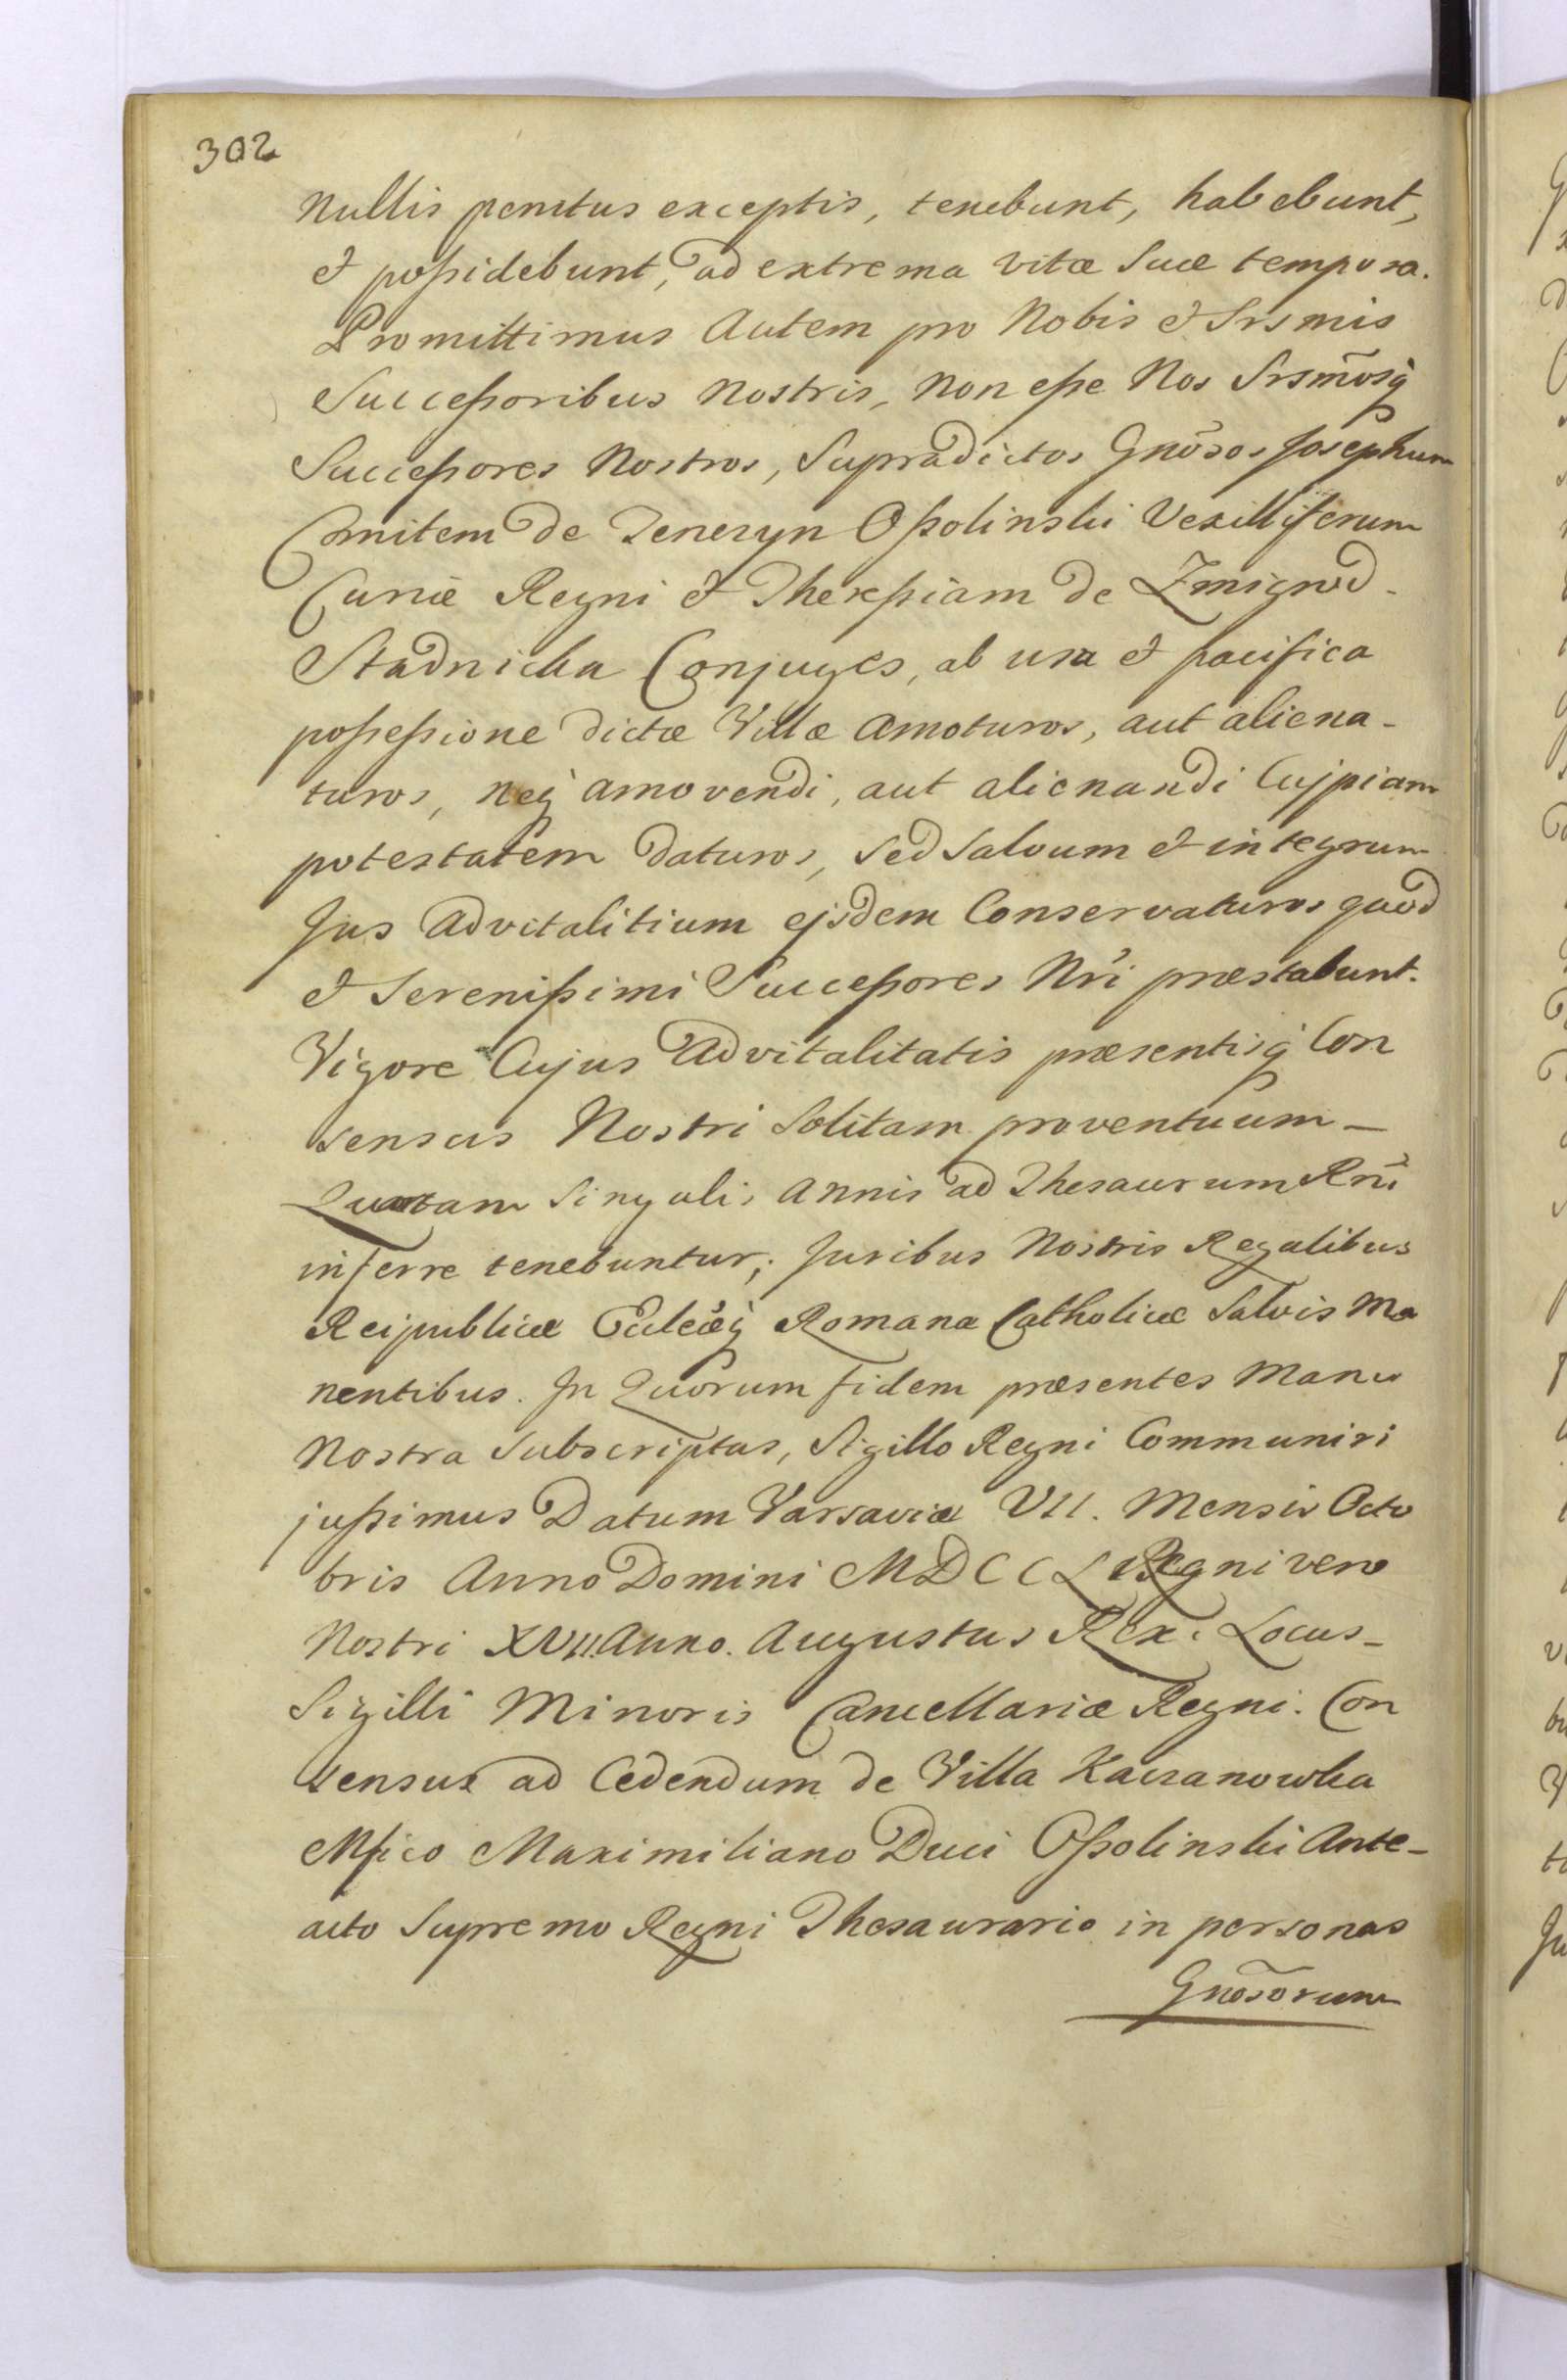 302
Nullis penitus exceptis, tenebunt, habebunt,
et poßidebunt, ad extrema vitæ Suæ tempora.
Promittimus Autem pro Nobis et Srsmis
Succeßoribus Nostris, Non eße Nos Srsm̃osq̀
Succeßores Nostros, Supradictos Gnõsos Josephum
Comitem de Tenczyn Oßolinski Vexilliferum
Curiæ Regni et Thereßiam de Zmigrod -
Stadnicka Conjuges, ab usu et pacifica
poßeßione dictæ Villæ Amoturos, aut aliena-
turos, neq̀ amovendi, aut alienandi Cujpiam
potestatem daturos, Sed Salvum et integrum
Jus Advitalitium ejsdem Conservaturos quod
et Serenißimi Succeßores Nri præstabunt.
Vigore Cujus Advitalitatis præsentisq̀ Con
sensus Nostri Solitam proventuum -
Quartam Singulis Annis ad Thesaurum Rñi
inferre tenebuntur; Juribus Nostris Regalibus
Reipublicæ Ecclẽæq̀ Romanæ Catholicæ Salvis Ma
nentibus. In Quorum fidem præsentes Manu
Nostra Subscriptas, Sigillo Regni Communiri
jußimus Datum Varsaviæ VII. Mensis Octo
bris Anno Domini MDCCL Regni vero
Nostri XVII. Anno. Augustus Rex. Locus -
Sigilli Minoris Cancellariæ Regni. Con
sensus ad Cedendum de Villa Kaczanowka
Mfico Maximiliano Duci Oßolinski Ante-
acto Supremo Regni Thesaurario in personas
Gnõsorum